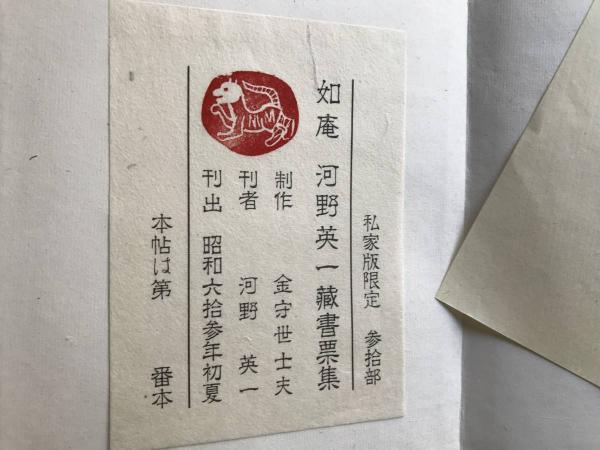 私家版限定 参拾部
如庵 河野英一藏書票集
制作 金守世士夫
刊者 河野英一
刊出 昭和六拾参年初夏
本帖は第 番本